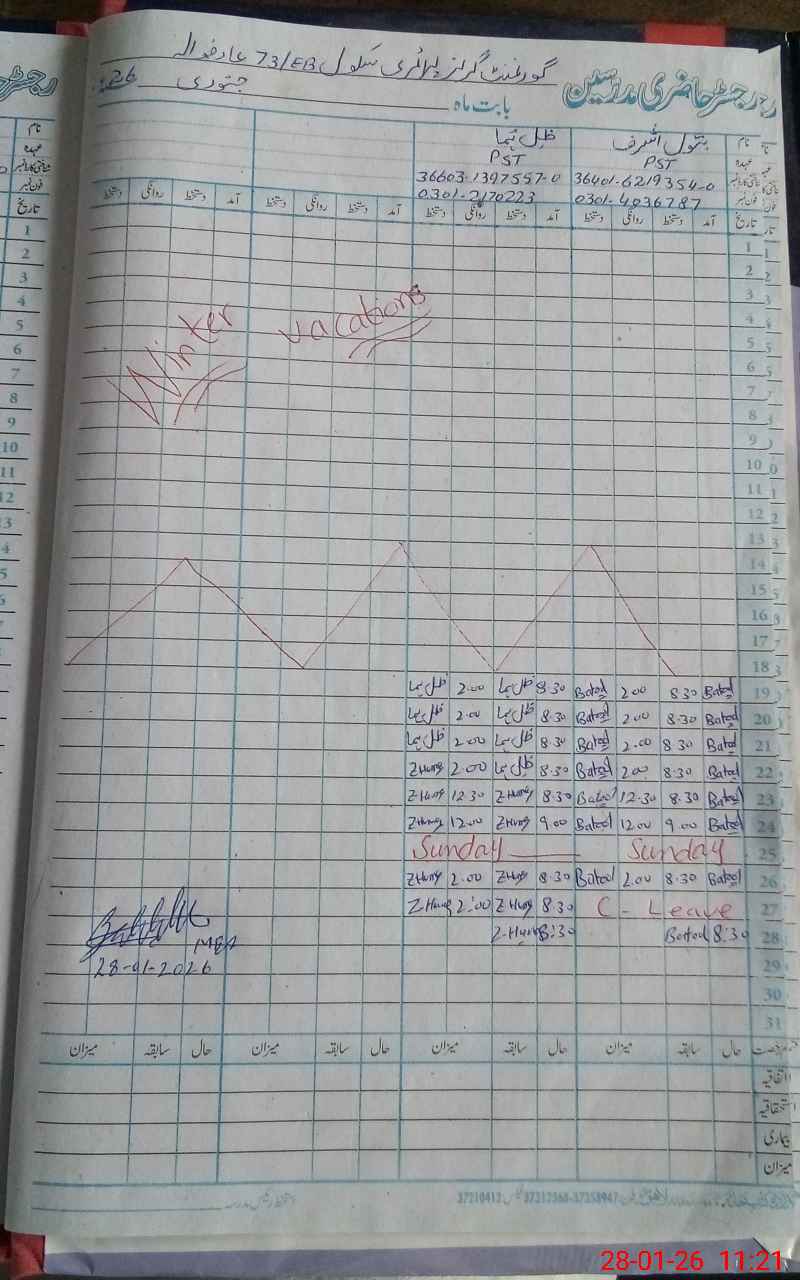 رجسٹر حاضری مدرسین گورنمنٹ گرلز پرائمری سکول 73/EB عارفوالہ
بابت ماہ جنوری 26
نام بتول اشرف ظل ہما
عہدہ PST PST
شناختی کارڈ نمبر 36401-6219354-0 36603-1397557-0
فون نمبر 0301-4036787 0301-2170223
تاریخ آمد دستخط روانگی دستخط آمد دستخط روانگی دستخط آمد دستخط روانگی دستخط آمد دستخط روانگی دستخط
1
2
3
4
Winter vacations
5
6
7
8
9
10
11
12
13
14
15
16
17
18
19 Batool 8.30 2.00 Batool 8.30 ظل ہما 2.00 ظل ہما
20 Batool 8.30 2.00 Batool 8.30 ظل ہما 2.00 ظل ہما
21 Batool 8.30 2.00 Batool 8.30 ظل ہما 2.00 ظل ہما
22 Batool 8.30 2.00 Batool 8.30 ظل ہما 2.00 ZHuma
23 Batool 8.30 12.30 Batool 8.30 ZHuma 12.30 ZHuma
24 Batool 9.00 12.00 Batool 9.00 ZHuma 12.00 ZHuma
25 Sunday Sunday
26 Batool 8.30 2.00 Batool 8.30 ZHuma 2.00 ZHuma
27 C - Leave 8:30 ZHuma 2:00 ZHuma
28 8:30 Batool 8:30 Z-Huma
MEA
28-01-2026
29
30
31
قسم رخصت حال سابقہ میزان حال سابقہ میزان حال سابقہ میزان حال سابقہ میزان
اتفاقیہ
استحقاقیہ
بیماری
میزان
37312368-37358947 37210412
28-01-26 11:21